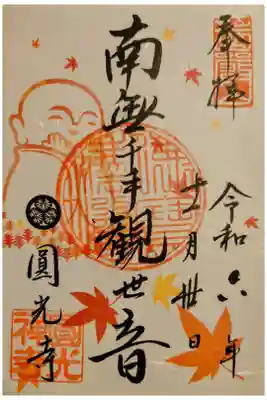 奉拝
令和六年
十一月卅日
南無千手観世音
圓光寺
圓光
禅寺